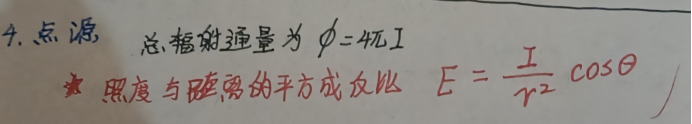 4. 点源 总辐射通量为 ϕ=4πI
* 照度与距离的平方成反比 E = I/r² cosθ